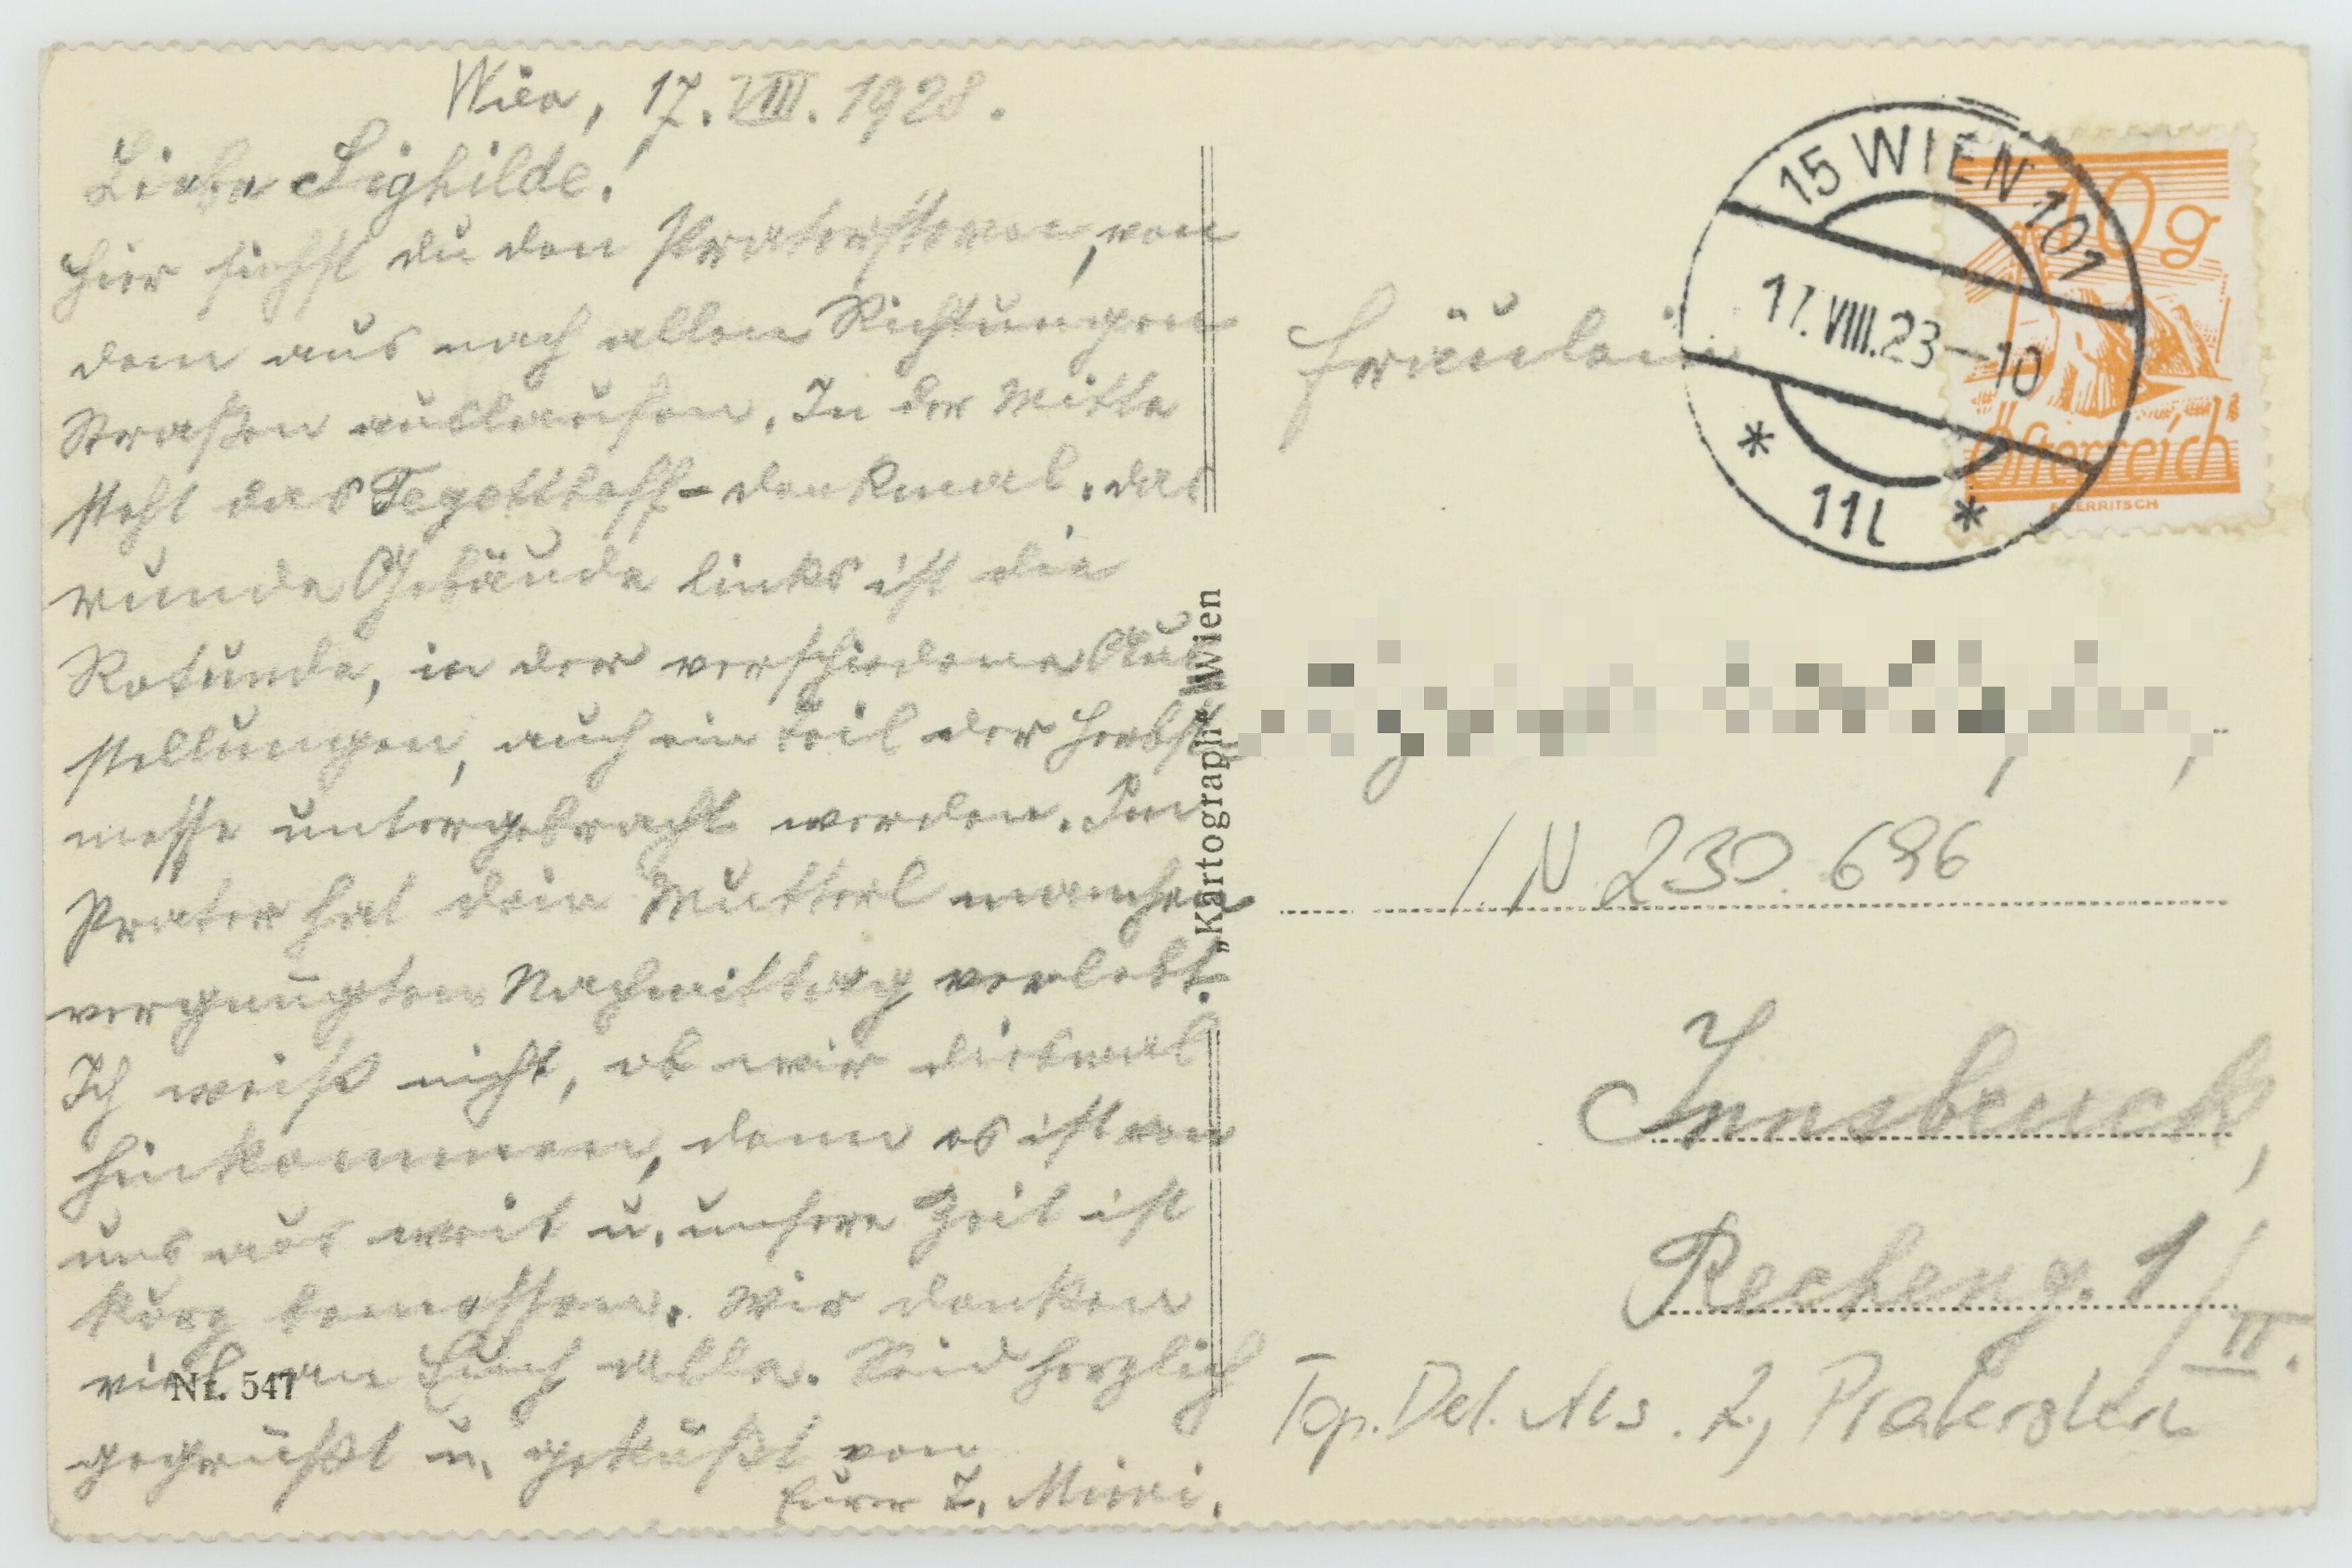 Wien, 17. VIII. 1928.
Liebe Sighilde!
Hier siehst du den Praterstern, von
dem aus nach allen Richtungen
Straßen auslaufen. In der Mitte
steht das Tegetthoff-denkmal. das
runde Gebäude links ist die
Rotunde, in der verschiedene Aus
stellungen, auch ein Teil der Herbst
messe untergebracht werden. Im
Prater hat dein Mutterl manchen
vergnügten Nachmittag verlebt.
Ich weiß nicht, ob wir diesmal
hinkommen, denn es ist von
uns aus weit u. unsere Zeit ist
kurz bemessen. Wir denken
viel an Euch alle. Seid herzlich
gegrüßt u. geküßt von
Eurer T. Mizzi.
Nr. 547
„Kartograph“ Wien
15 WIEN 101
17. VIII. 23-10
* 11l *
10g
Österreich
Fräulein
I. N. 230.696
Innsbruck,
Recheng. 1/II.
Top. Det. Als. 2, Praterstern